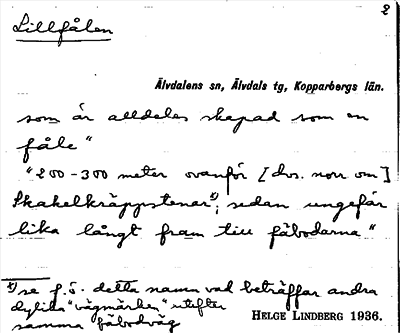 2
Lillfålen
Älvdalens sn, Älvdals tg, Kopparbergs län.
som är alldeles skapad som en
fåle"
"200-300 meter ovanför [dvs. norr om]
Skakelkräppstenar x); sedan ungefär
lika långt fram till fäbodarna"
x) se f.ö. detta namn vad beträffar andra
dylika "vägmärken" utefter
samma fäbodväg
HELGE LINDBERG 1936.